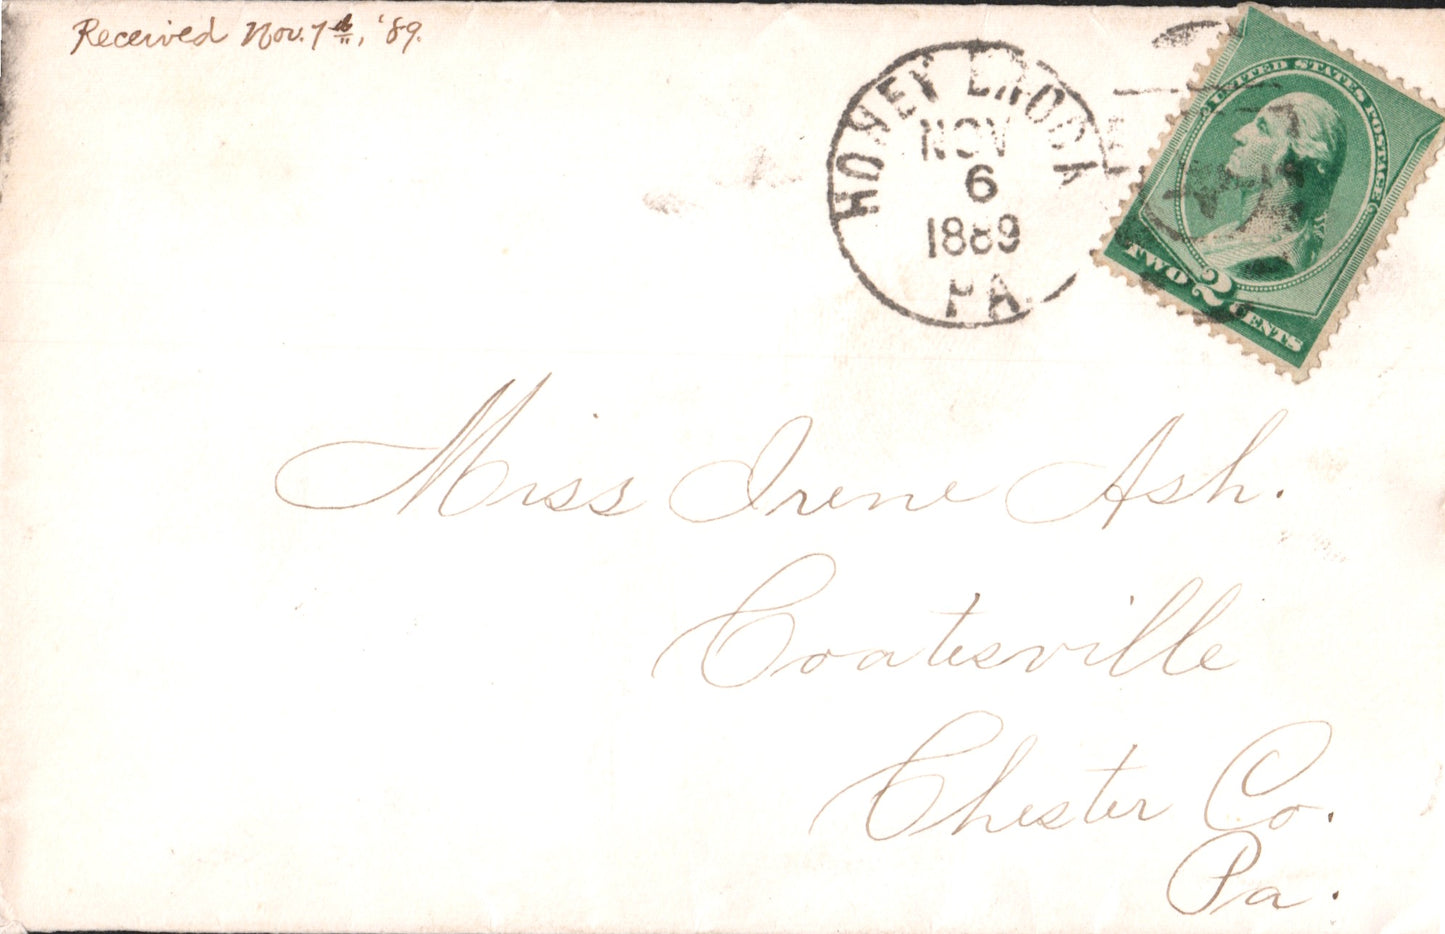 Received Nov. 7th, '89.
HONEY BROOK
NOV
6
1889
PA
UNITED STATES POSTAGE
TWO 2 CENTS
Miss Irene Ash.
Coatesville
Chester Co.
Pa.